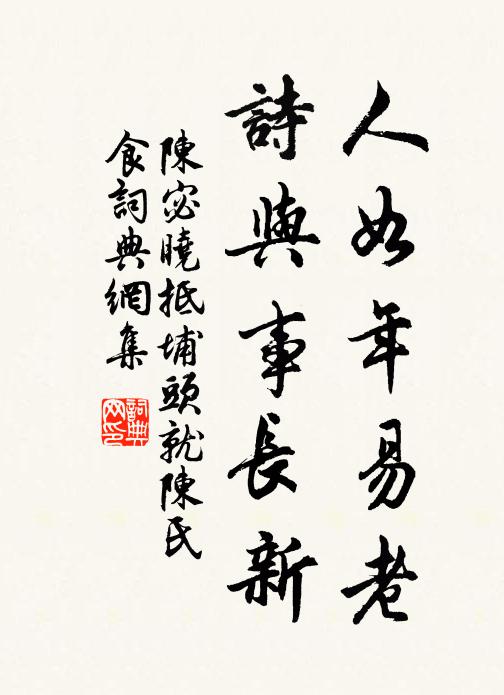 人如年易老
詩與事長新
陳宓曉抵埔頭就陳民
食詞典網集
詞典
网印